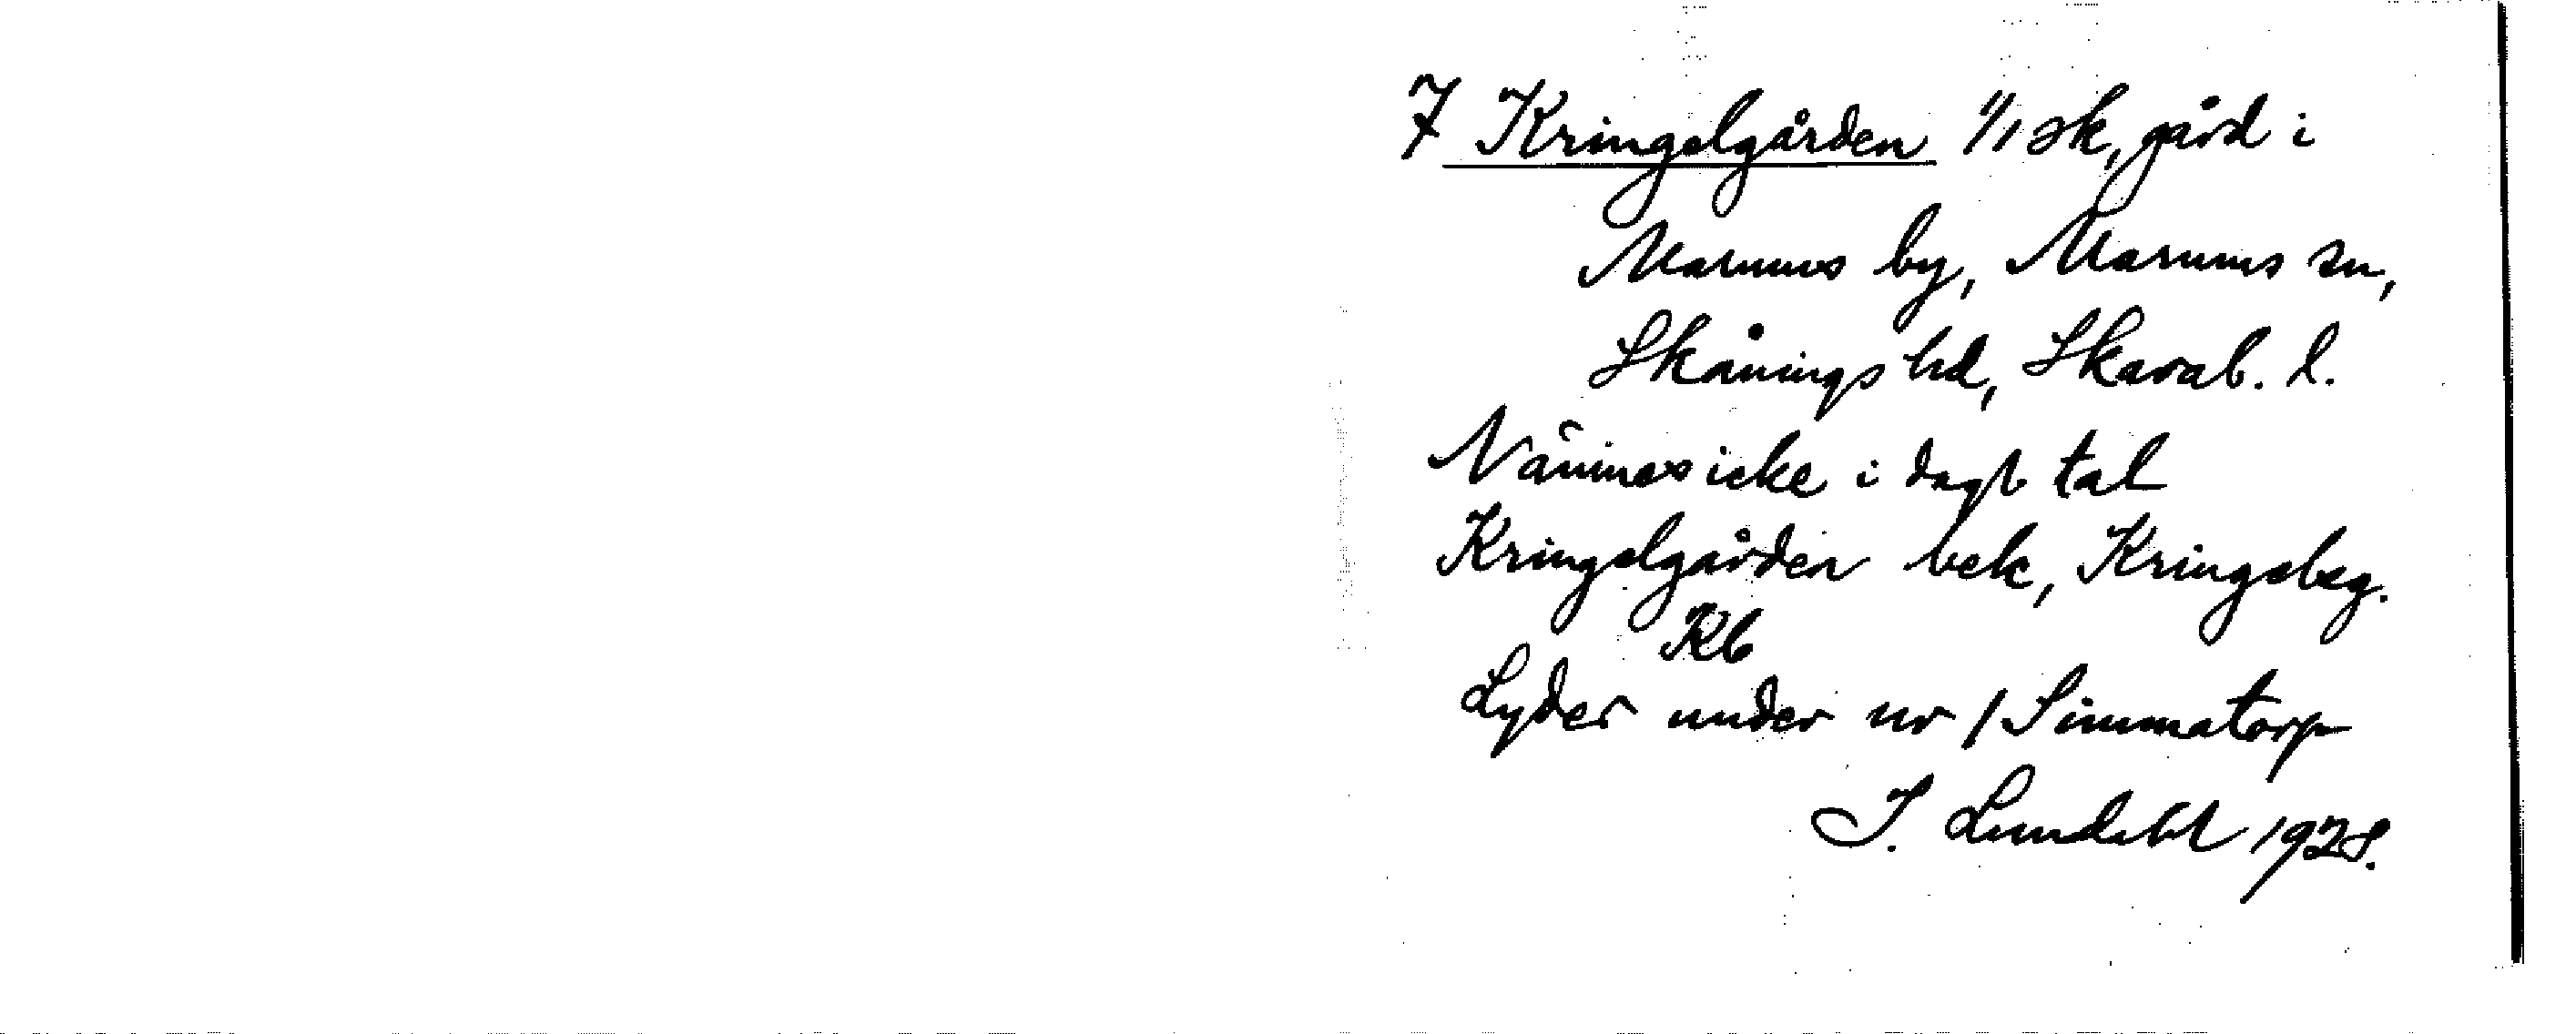 7 Kringelgården 1/1 sk, gård i
Marums by, Marums sn,
Skånings hd, Skarab. l.
Nämnes icke i dagl tal
Kringelgården bek, Kringelsg.
Rb
Lyder under nr 1 Simmatorp
I. Lundahl 1928.